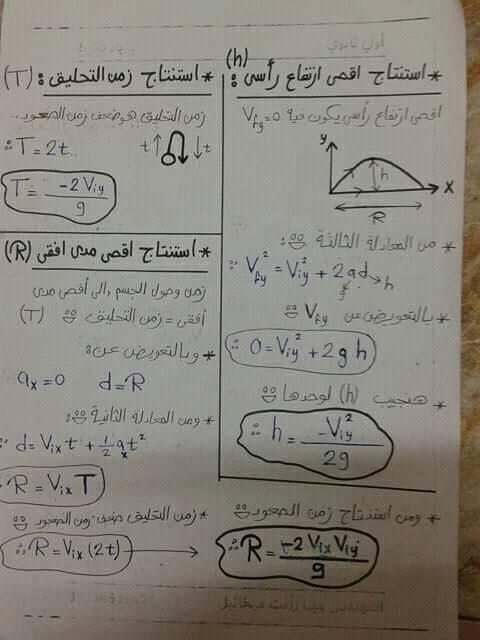 أولي ثانوي
* استنتاج اقصى ارتفاع رأسى (h) :
اقصى ارتفاع رأسى يكون فيه Vfy=0
y
h
x
R
* من المعادلة الثالثة :
∴ Vfy² = Viy² + 2ad
g
h
* بالتعويض عن Vfy
0 = Viy² + 2gh
* هنجيب (h) لوحدها
∴ h = -Viy² / 2g
* ومن استنتاج زمن الصعود
∴ R = -2 Vix Viy / g
* استنتاج زمن التحليق : (T)
زمن التحليق هو ضعف زمن الصعود..
∴ T = 2t
t↑ ↓t
T = -2Viy / g
* استنتاج اقصى مدى افقى (R)
زمن وصول الجسم إلى أقصى مدى
أفقى = زمن التحليق (T)
* وبالتعويض عن:
ax = 0 d = R
* ومن المعادلة الثانية :
∴ d = Vix t + ½ axt²
R = Vix T
* زمن التحليق ضعف زمن الصعود
∴ R = Vix (2t)
المهندس مينا رأفت ميخائيل